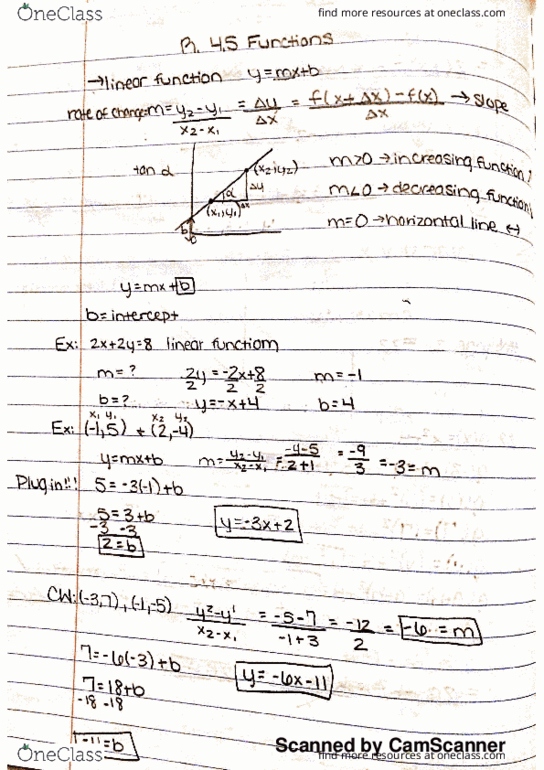 OneClass
find more resources at oneclass.com
P. 4.5 Functions
→linear function y=mx+b
rate of change: m = y₂-y₁/x₂-x₁ = Δy/Δx = f(x+Δx)-f(x)/Δx → slope
tan α
(x₂,y₂)
Δy
α
(x₁,y₁) Δx
b
m>0 →increasing function
m<0 →decreasing function
m=0 →horizontal line ↔
y=mx+b
b=intercept
Ex: 2x+2y=8 linear function
m=? 2y/2=-2x/2+8/2 m=-1
b=? y=-x+4 b=4
x₁ y₁ x₂ y₂
Ex: (-1,5) + (2,-4)
y=mx+b m=y₂-y₁/x₂-x₁ = -4-5/2+1 = -9/3 = -3=m
Plug in!!! 5=-3(-1)+b
5=3+b
-3 -3
2=b
y=-3x+2
CW: (-3,7), (-1,-5) y²-y'/x₂-x₁ = -5-7/-1+3 = -12/2 = -6=m
7=-6(-3)+b
7=18+b
-18 -18
y=-6x-11
-11=b
Scanned by CamScanner
OneClass
find more resources at oneclass.com